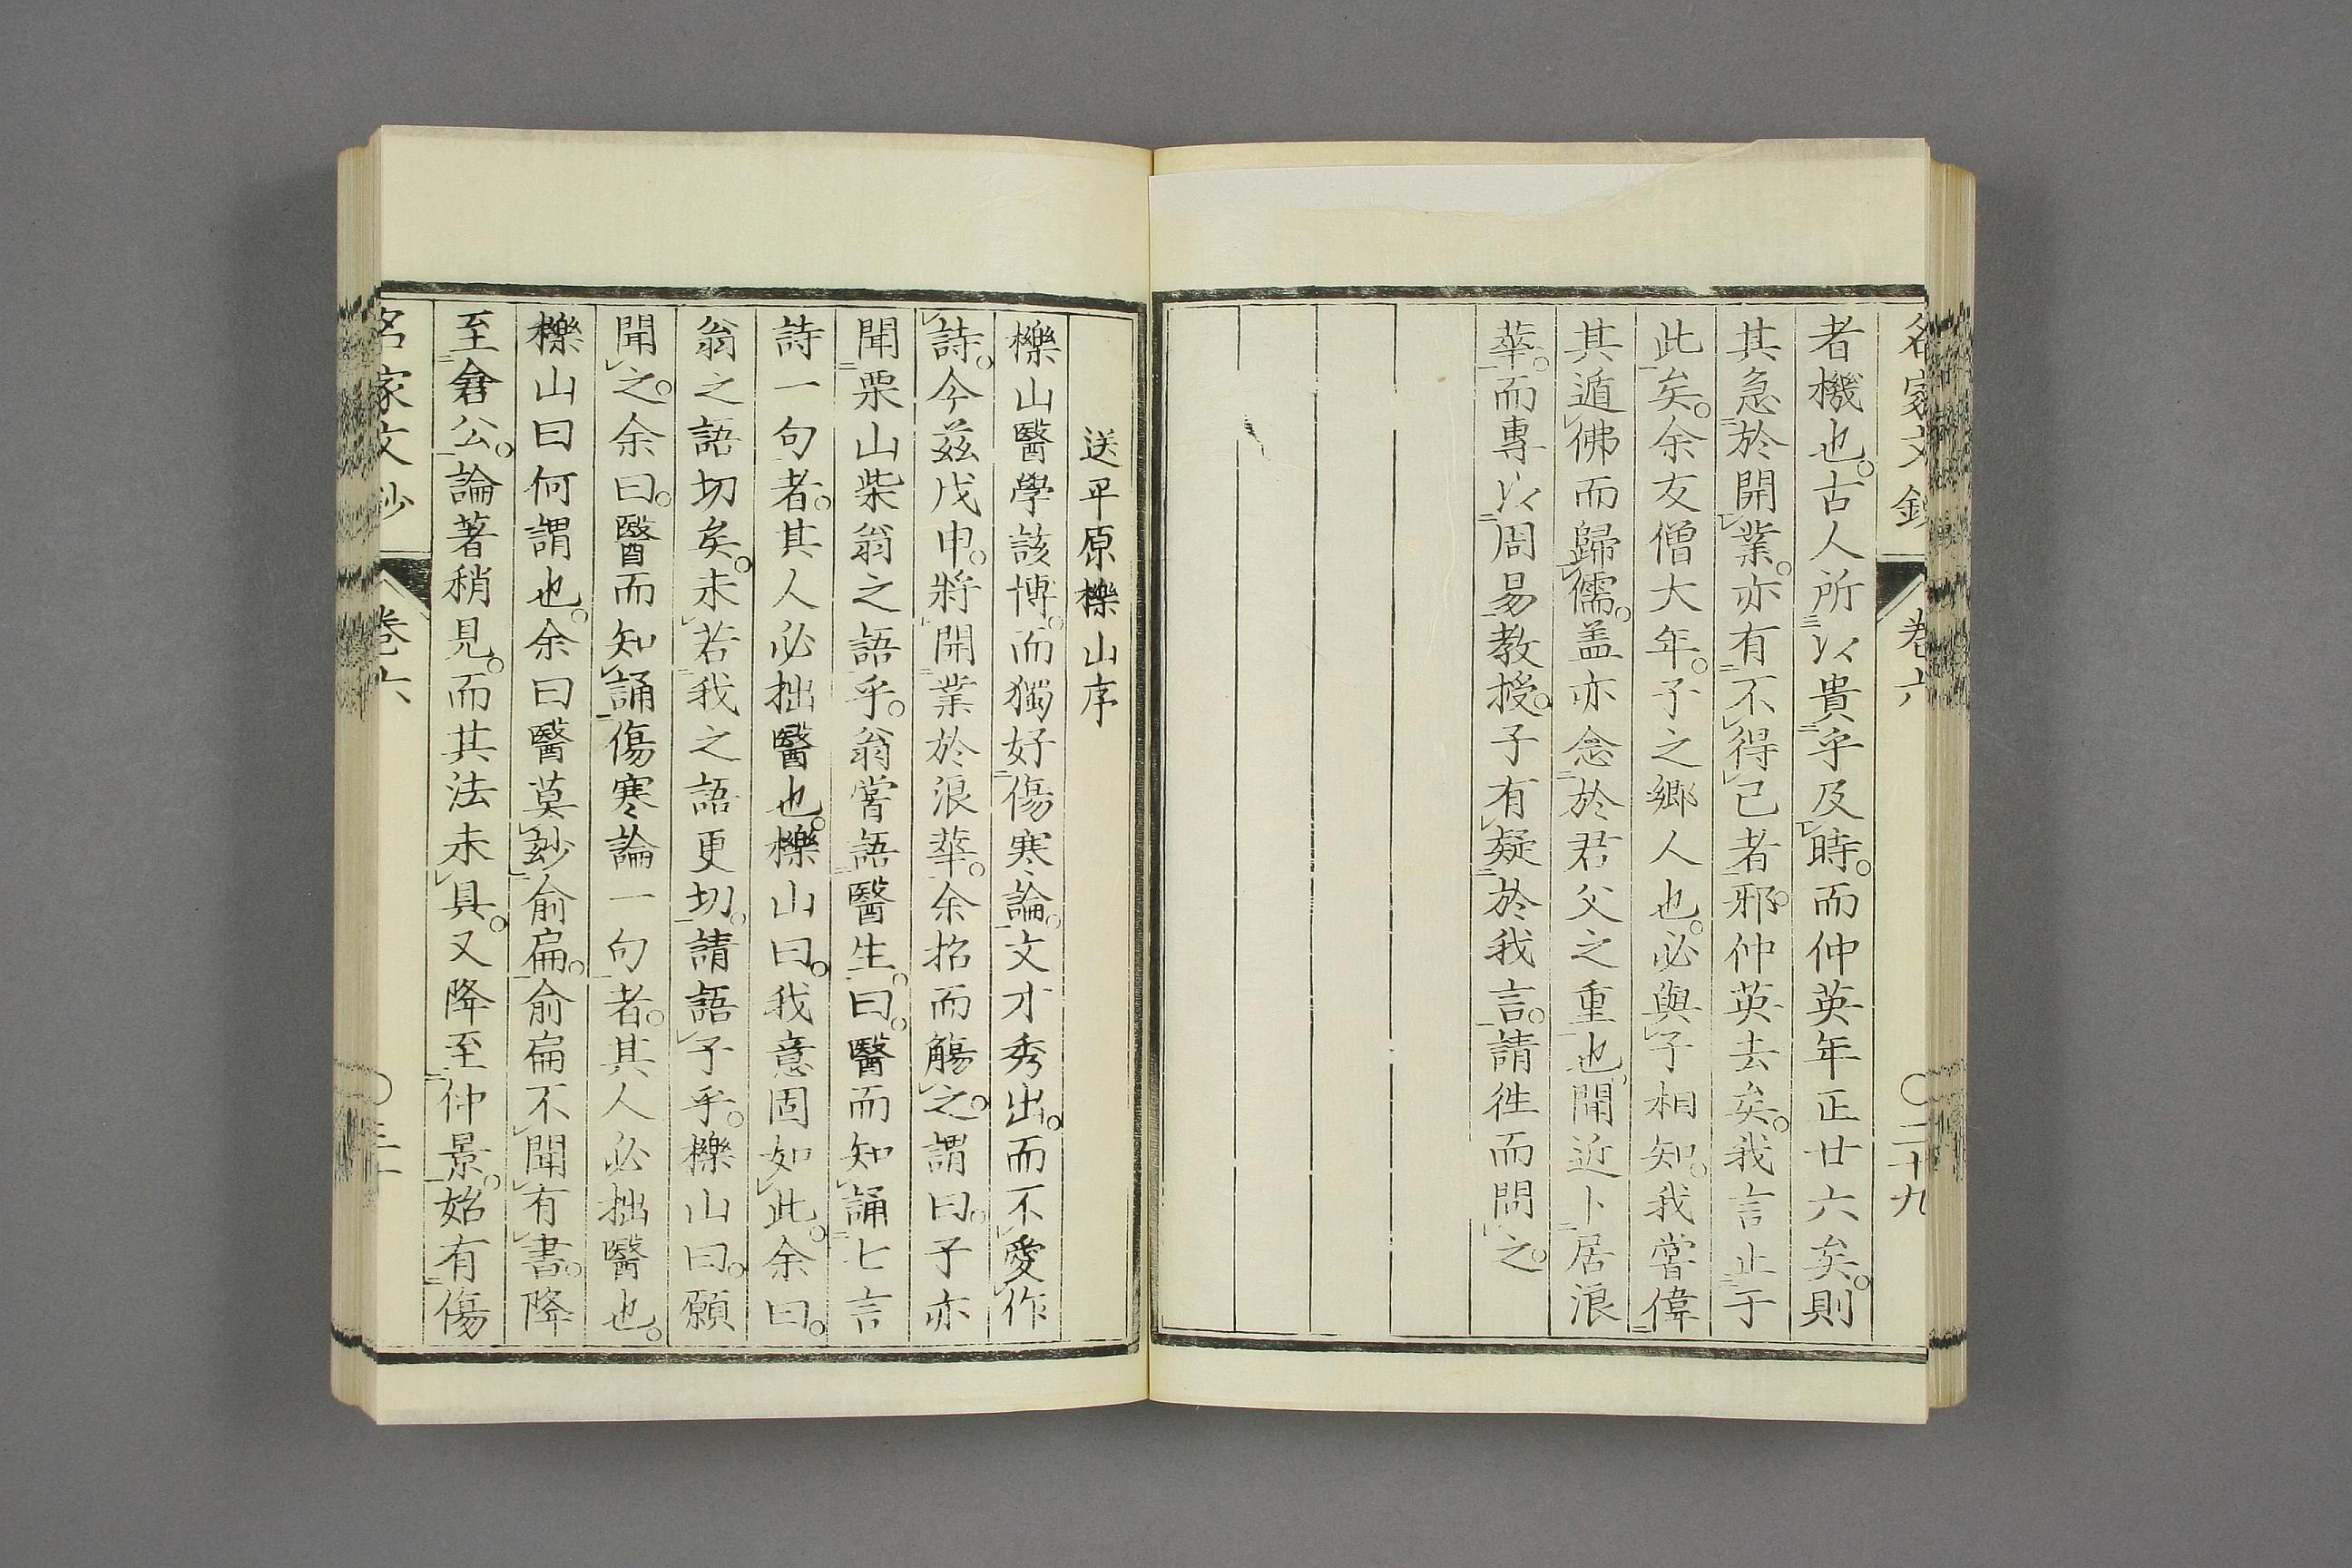 名家文鈔 卷六 〇二十九
者機也。古人所以貴乎及時。而仲英年正廿六矣。則
其急於開業。亦有不得已者邪。仲英去矣。我言止于
此矣。余友僧大年。予之鄉人也。必與予相知。我嘗偉
其遁佛而歸儒。盖亦念於君父之重也。聞近卜居浪
華。而專以周易教授。子有疑於我言。請徃而問之。
送平原櫟山序
櫟山醫學該博。而獨好傷寒論。文才秀出。而不愛作
詩。今茲戊申。將開業於浪華。余招而觴之。謂曰。子亦
聞栗山柴翁之語乎。翁嘗語醫生。曰。醫而知誦七言
詩一句者。其人必拙醫也。櫟山曰。我意固如此。余曰。
翁之語切矣。未若我之語更切。請語予乎。櫟山曰。願
聞之。余曰。醫而知誦傷寒論一句者。其人必拙醫也。
櫟山曰何謂也。余曰醫莫玅俞扁。俞扁不聞有書。降
至倉公。論著稍見。而其法未具。又降至仲景。始有傷
名家文鈔 卷六 〇三十